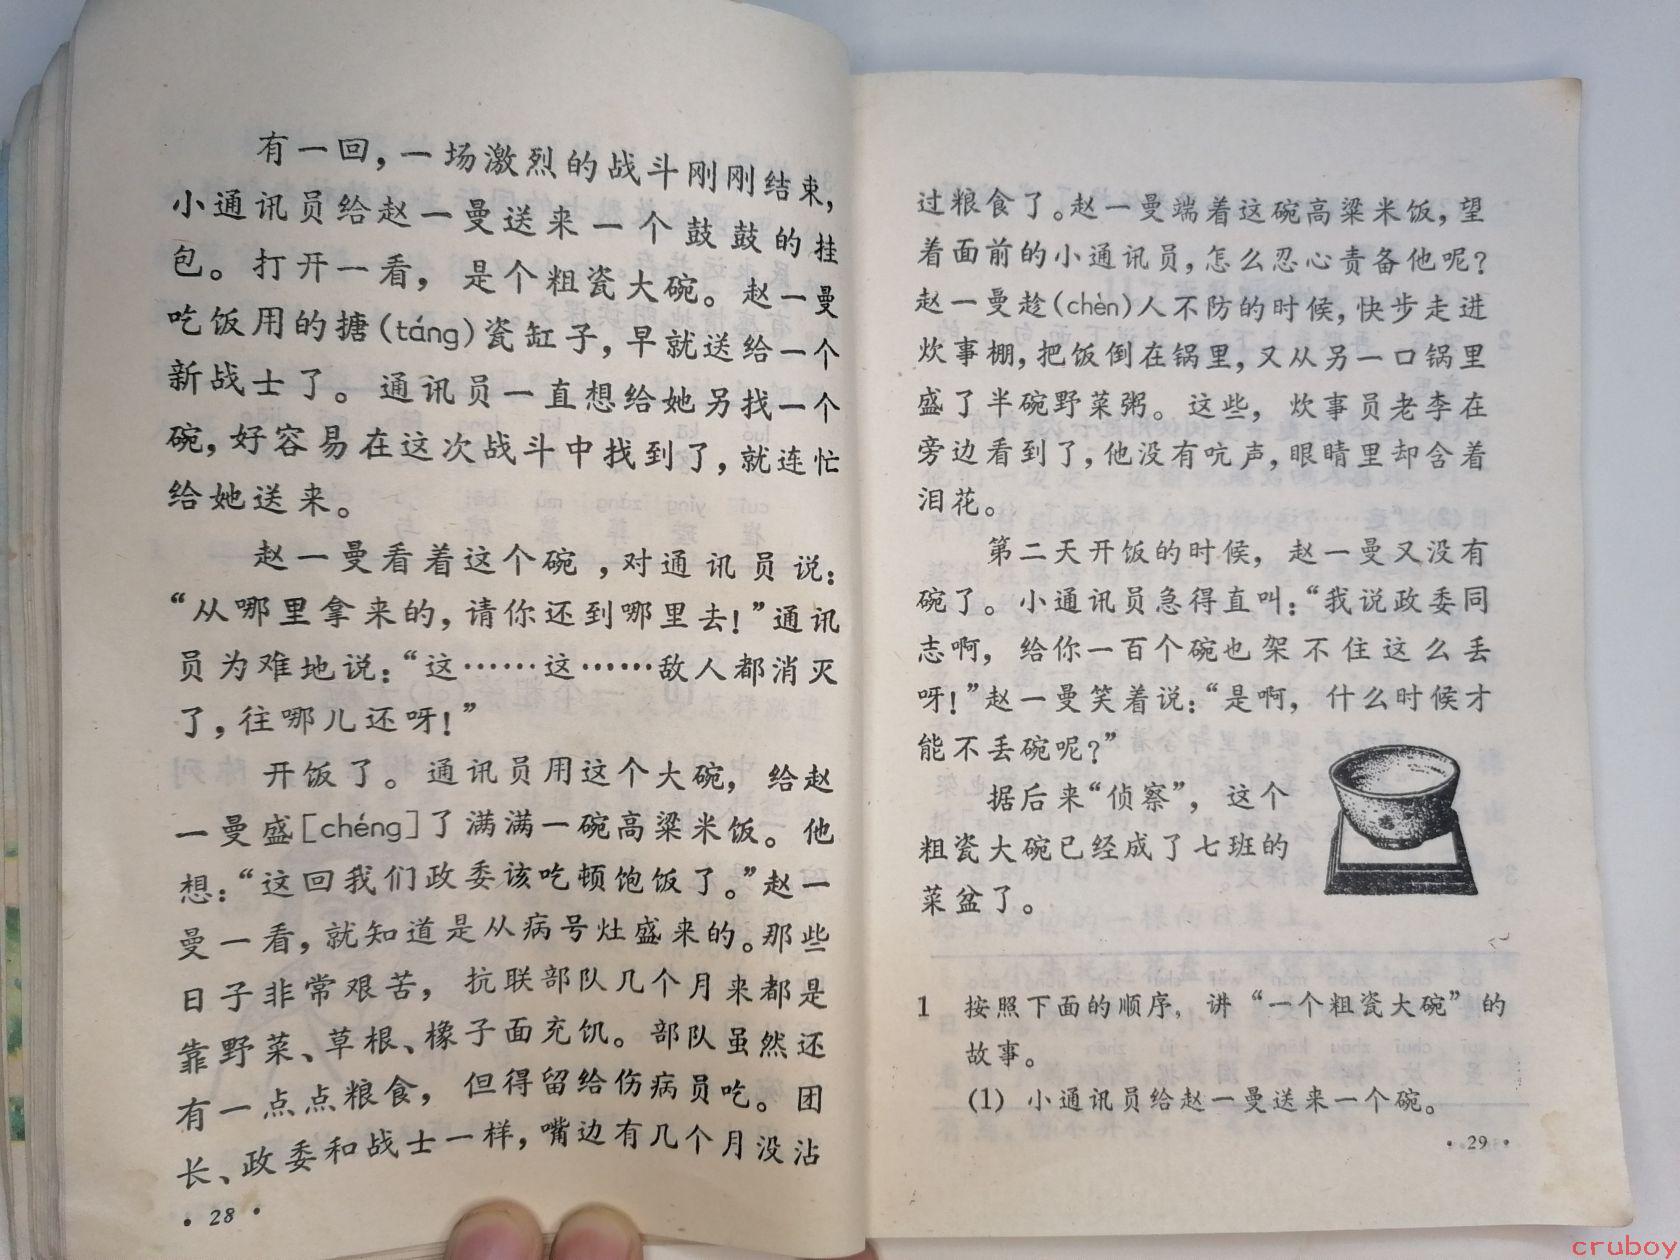 有一回，一场激烈的战斗刚刚结束，
小通讯员给赵一曼送来一个鼓鼓的挂
包。打开一看，是个粗瓷大碗。赵一曼
吃饭用的搪(táng)瓷缸子，早就送给一个
新战士了。通讯员一直想给她另找一个
碗，好容易在这次战斗中找到了，就连忙
给她送来。
赵一曼看着这个碗，对通讯员说：
“从哪里拿来的，请你还到哪里去！”通讯
员为难地说：“这……这……敌人都消灭
了，往哪儿还呀！”
开饭了。通讯员用这个大碗，给赵
一曼盛[chéng]了满满一碗高粱米饭。他
想：“这回我们政委该吃顿饱饭了。”赵一
曼一看，就知道是从病号灶盛来的。那些
日子非常艰苦，抗联部队几个月来都是
靠野菜、草根、橡子面充饥。部队虽然还
有一点点粮食，但得留给伤病员吃。团
长、政委和战士一样，嘴边有几个月没沾
• 28 •
过粮食了。赵一曼端着这碗高粱米饭，望
着面前的小通讯员，怎么忍心责备他呢？
赵一曼趁(chèn)人不防的时候，快步走进
炊事棚，把饭倒在锅里，又从另一口锅里
盛了半碗野菜粥。这些，炊事员老李在
旁边看到了，他没有吭声，眼睛里却含着
泪花。
第二天开饭的时候，赵一曼又没有
碗了。小通讯员急得直叫：“我说政委同
志啊，给你一百个碗也架不住这么丢
呀！”赵一曼笑着说：“是啊，什么时候才
能不丢碗呢？”
据后来“侦察”，这个
粗瓷大碗已经成了七班的
菜盆了。
1 按照下面的顺序，讲“一个粗瓷大碗”的
故事。
(1) 小通讯员给赵一曼送来一个碗。
• 29 •
cruboy